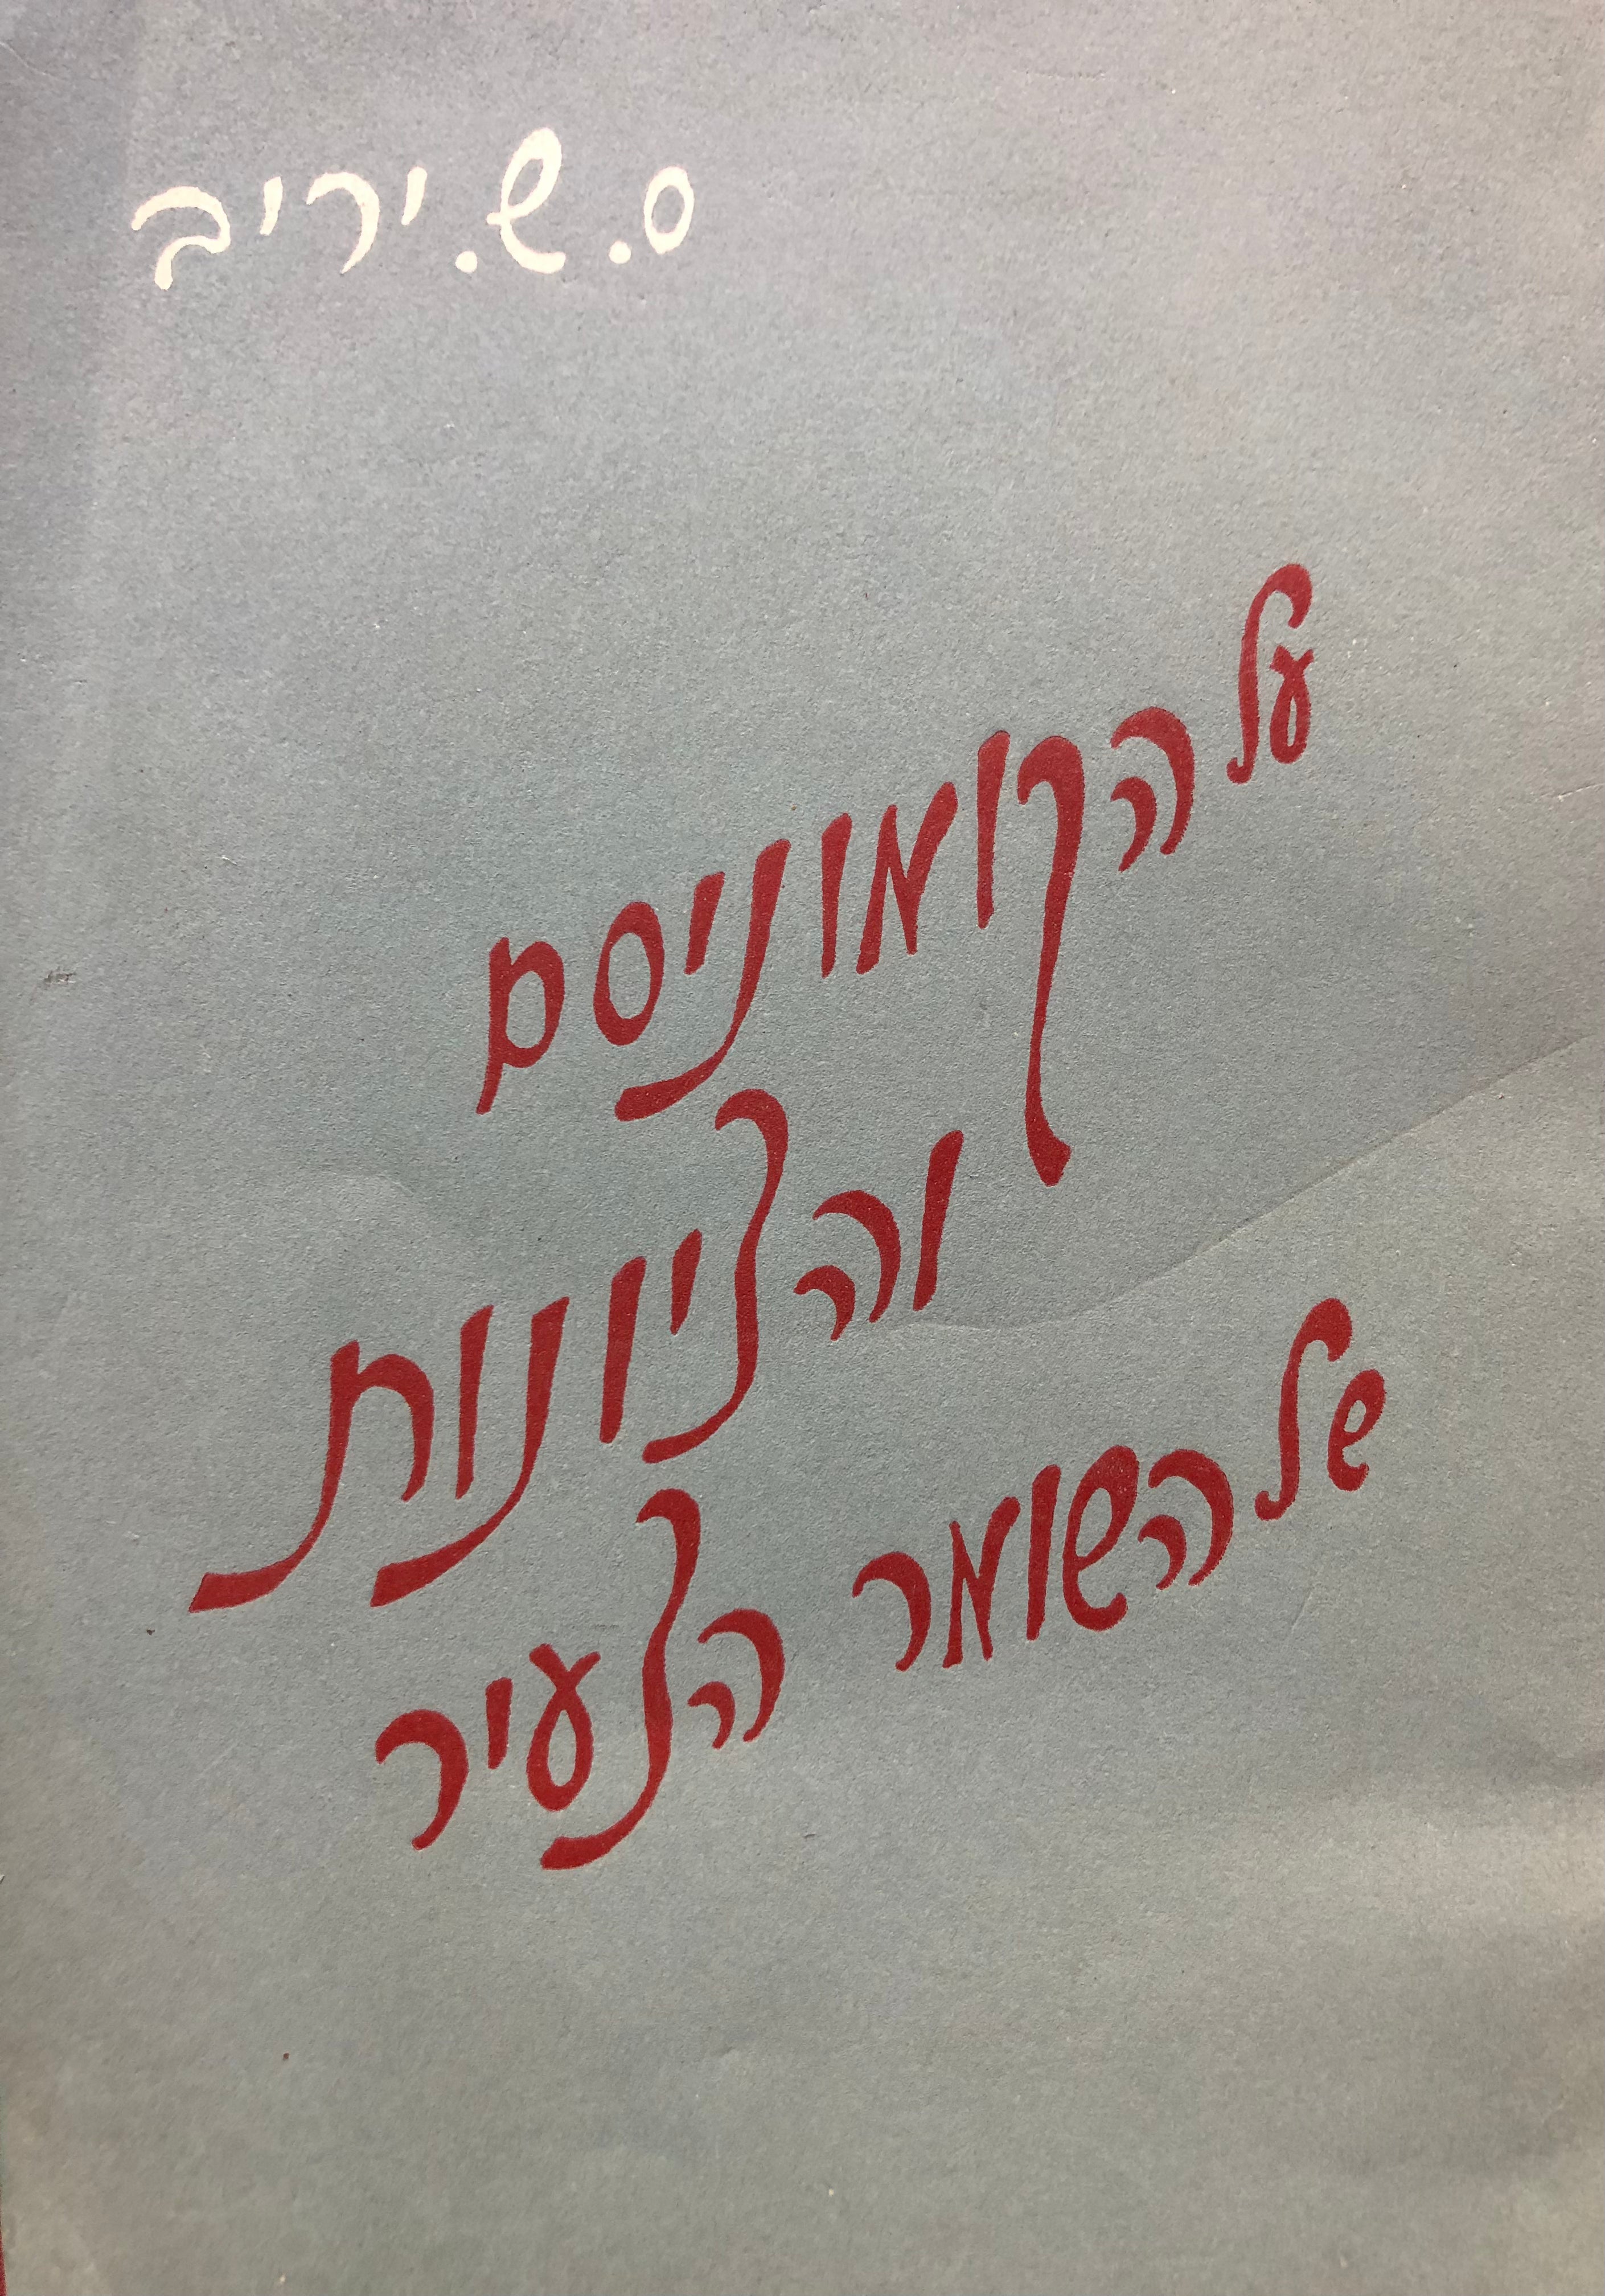 ס.ש.יריב
על הקומוניסם
והציונות
של השומר הצעיר